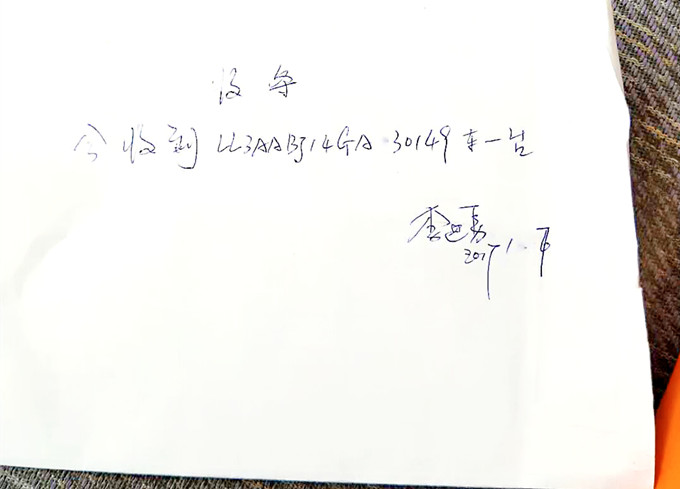 收条
今收到 LL3AABJ14GA 30149 车一台
李
2017.1.